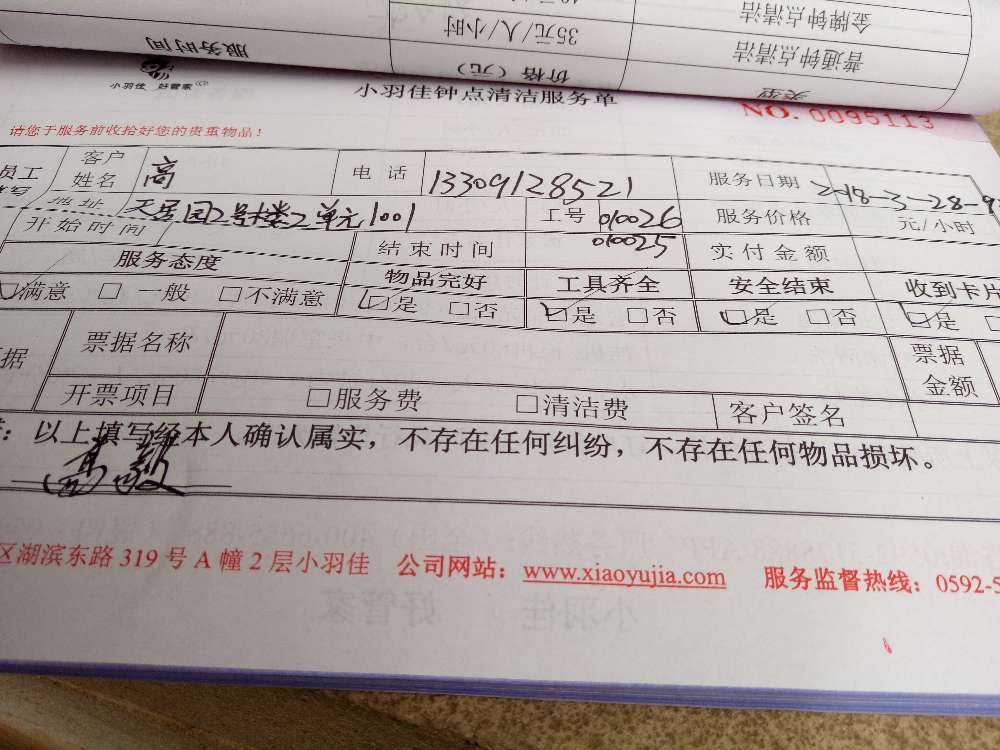 金牌钟点清洁
普通钟点清洁 35元/人/小时
类型 价格（元） 服务时间
小羽佳 好管家
小羽佳钟点清洁服务单
NO. 0095113
请您于服务前收拾好您的贵重物品！
员工 客户姓名 高 电话 13309128521 服务日期 2018-3-28-9
地址 2号楼2单元1001 工号 010026 服务价格 元/小时
开始时间 结束时间 010025 实付金额
服务态度 物品完好 工具齐全 安全结束 收到卡片
满意 □ 一般 □不满意 □是 □否 □是 □否 □是 □否 □是 □
据 票据名称 票据金额
开票项目 □服务费 □清洁费 客户签名
：以上填写经本人确认属实，不存在任何纠纷，不存在任何物品损坏。
区湖滨东路 319 号 A 幢 2 层小羽佳 公司网站：www.xiaoyujia.com 服务监督热线：0592-5
小羽佳 好管家